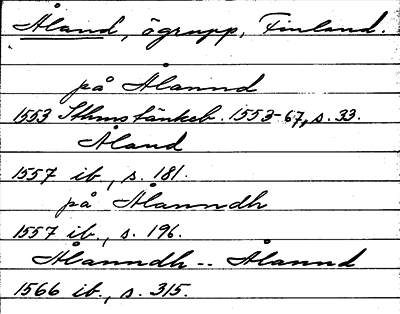 Åland, ögrupp, Finland.
på Ålannd
1553 Sthmstänkeb. 1553-67, s. 33.
Åland
1557 ib., s. 181.
på Ålanndh
1557 ib., s. 196.
Ålanndh -- Ålannd
1566 ib., s. 315.